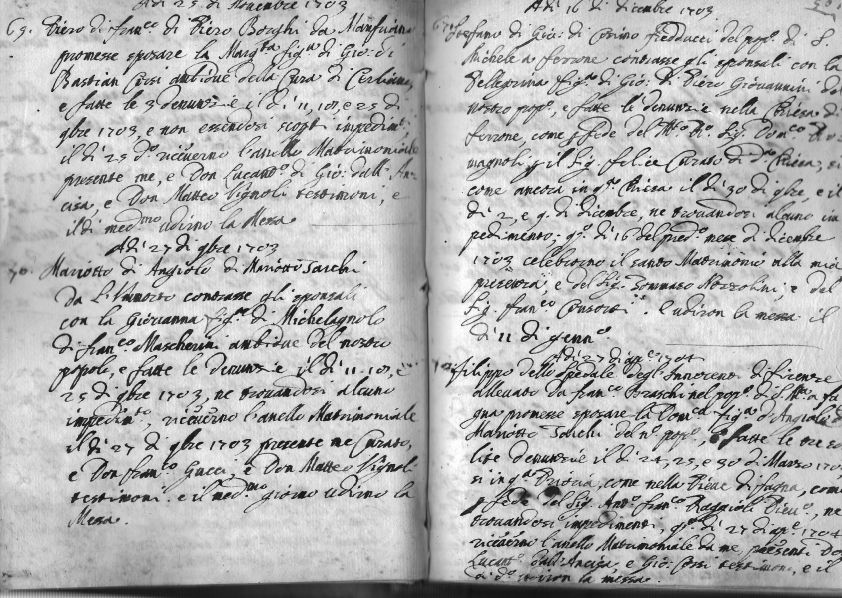 Adi 25 di Novembre 1703
69. Piero di Fran.co di Piero Borghi da
promesse sposare la Marg.ta fig.la di Gio: di
Bastian Corsi ambidue della Cura di
e fatte le 3 denunzie il di 11, 18, e 25 di
9bre 1703, e non essendosi scop.ti impedim.ti
il di 25 d.o riceverno l'anello Matrimoniale
presente me, e Don Lucant.o di Gio: dall' An-
cisa, e Don Matteo Vignoli testimoni, e
il di med.mo udirno la Messa
Adi 27 di 9bre 1703
70. Mariotto di Angiolo di Mariotto Sarchi
da contrasse gli sponsali
con la Giovanna fig.la di Michelagnolo
di Fran.co Mascherini ambidue del nostro
popolo, e fatte le denunzie il di 11, 18, e
25 di 9bre 1703, ne trovandosi alcuno
impedim.to, riceverno l'anello Matrimoniale
il di 27 di 9bre 1703 presente me Curato,
e Don Fran.co Gucci, e Don Matteo Vignoli
testimoni. e il med.mo giorno udirno la
Messa.
Adi 16 di dicembre 1703
Stefano di Gio: di Cosimo Freducci del pop.o di S.
Michele a ferrone contrasse gli sponsali con la
Pellegrina fig.la di Gio: di Piero Giovannini del
nostro pop.o, e fatte le denunzie nella Chiesa di
ferrone, come p fede del M.o R.o Sig. Dom.co Ro-
magnoli, p il Sig. felice Curato di d.a Chiesa, si
come ancora in q.ta Chiesa il di 30 di 9bre, e il
di 2, e 9. di dicembre, ne trovandosi alcuno im
pedimento; q.o di 16 del pred.o mese di dicembre
1703 celebrorno il santo Matrimonio alla mia
presenza, e del Sig. Tommaso Nozzolini, e del
Sig. Fran.co . E udiron la messa il
di 11 di genn.o
Adi 27 di ap.e 1704
Filippo dello Spedale degl'Innocenti di firenze
allevato da fran.co Braschi nel pop.o di S. M.a a fa
gna promesse sposare la Dom.ca fig.la d'Angiolo di
Mariotto Sarchi del n.o pop.o, e fatte le tre so
lite denunzie il di 24, 25, e 30 di Marzo 170
si in q.ta , come nella Pieve di fagna, come
p fede del Sig. Ant.o fran.co Piev.o, ne
trovandosi impedimenti, q.o di 27 di ap.e 1704
riceverno l'anello Matrimoniale da me, presenti Don
Lucant.o dall'Ancisa, e Gio: Corsi testimoni, e il
di d.o udiron la messa.